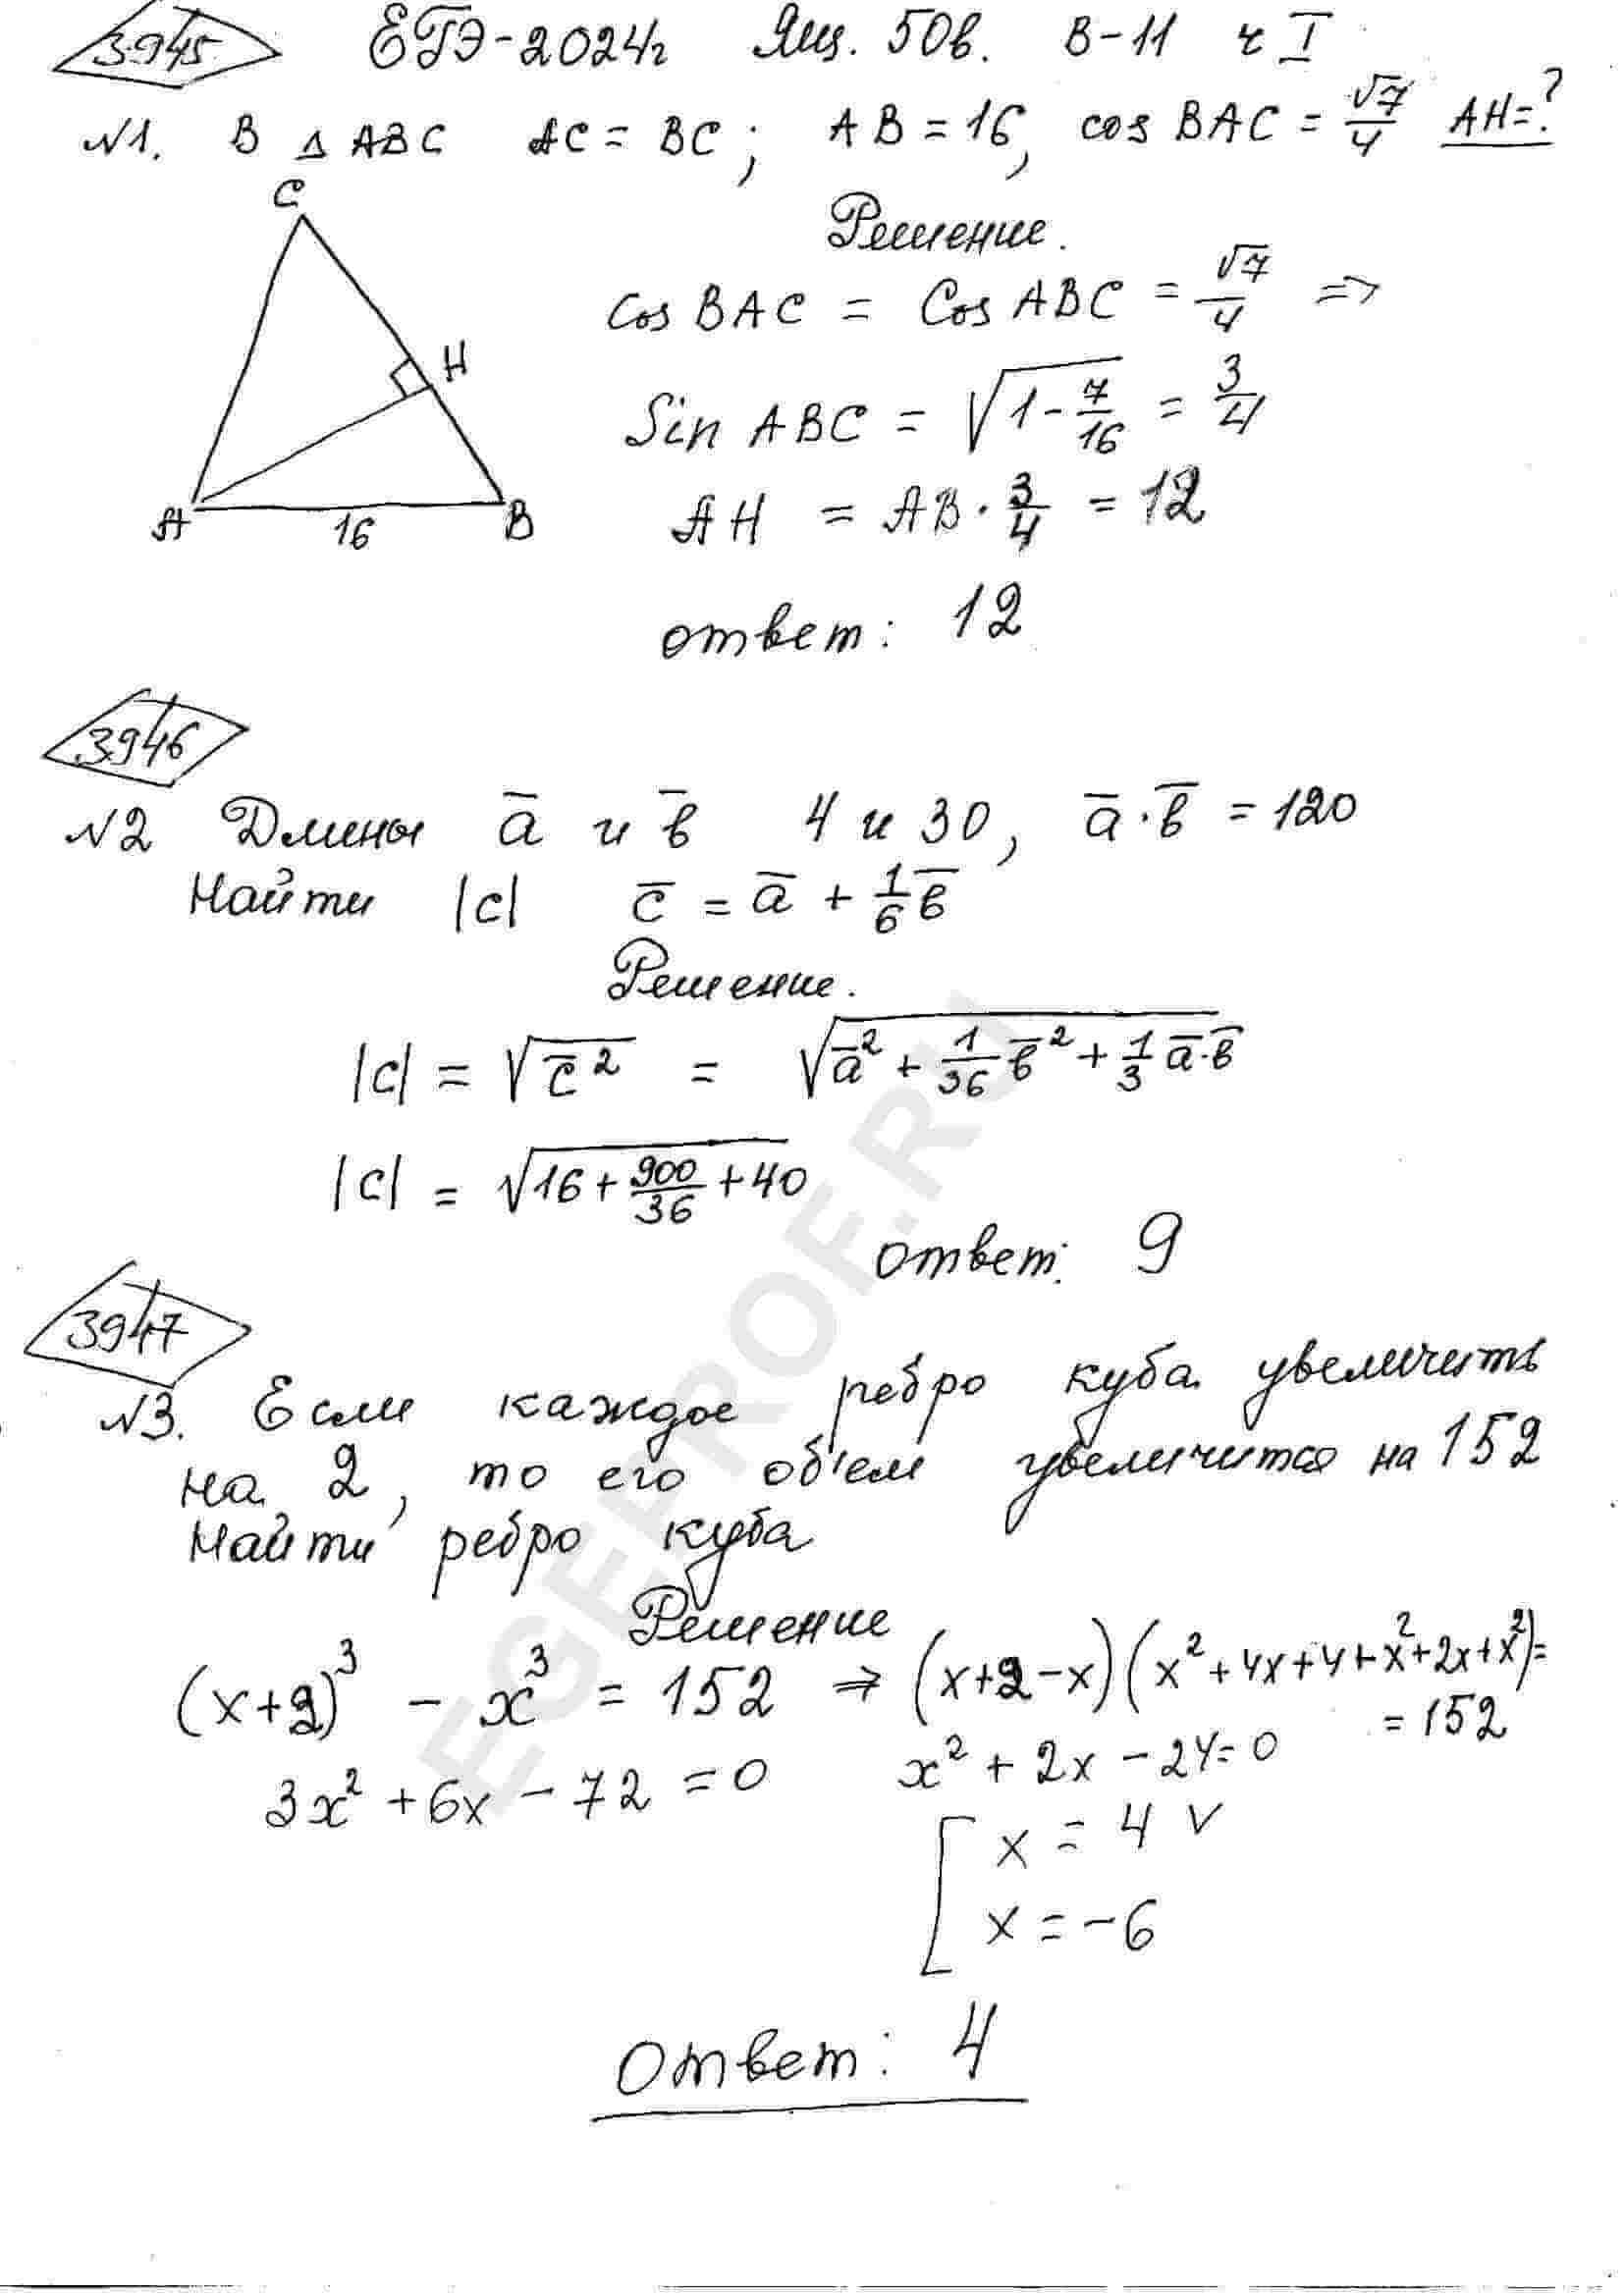 3945 ЕГЭ-2024г Ящ. 50в. В-11 ч I
N1. В Δ ABC AC = BC; AB = 16, cos BAC = √7/4 AH = ?
C
H
A
16
B
Решение.
Cos BAC = Cos ABC = √7/4 =>
Sin ABC = √(1 - 7/16) = 3/4
AH = AB · 3/4 = 12
ответ: 12
3946
N2 Длины a̅ и b̅ 4 и 30, a̅ · b̅ = 120
Найти |c| c̅ = a̅ + 1/6 b̅
Решение.
|c| = √(c̅²) = √(a̅² + 1/36 b̅² + 1/3 a̅·b̅)
|c| = √(16 + 900/36 + 40)
ответ: 9
3947
N3. Если каждое ребро куба увеличить
на 2, то его об'ем увеличится на 152
Найти ребро куба
Решение
(x+2)³ - x³ = 152 => (x+2-x)(x²+4x+4+x²+2x+x²)=
= 152
3x² + 6x - 72 = 0 x² + 2x - 24 = 0
[ x = 4 v
x = -6
Ответ: 4
EGEPROF.RU